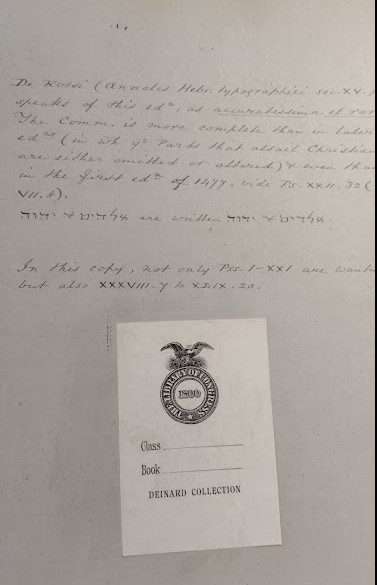 De Rossi (Annales Hebr. typographici sec. XV.
speaks of this edⁿ, as accuratissima et
The Comm. is more complete than in later
edⁿˢ (in wh. yᵉ parts that assail
are either omitted or altered) & even
in the first edⁿ of 1477, vide Ps. XXII. 32 (
VII. 8).
אלהים & יהוה are written אלדים & יהוד.
In this copy, not only Pss. I-XXI are
but also XXXVIII. 7 to XLIX. 20.
THE LIBRARY OF CONGRESS
1800
Class
Book
DEINARD COLLECTION